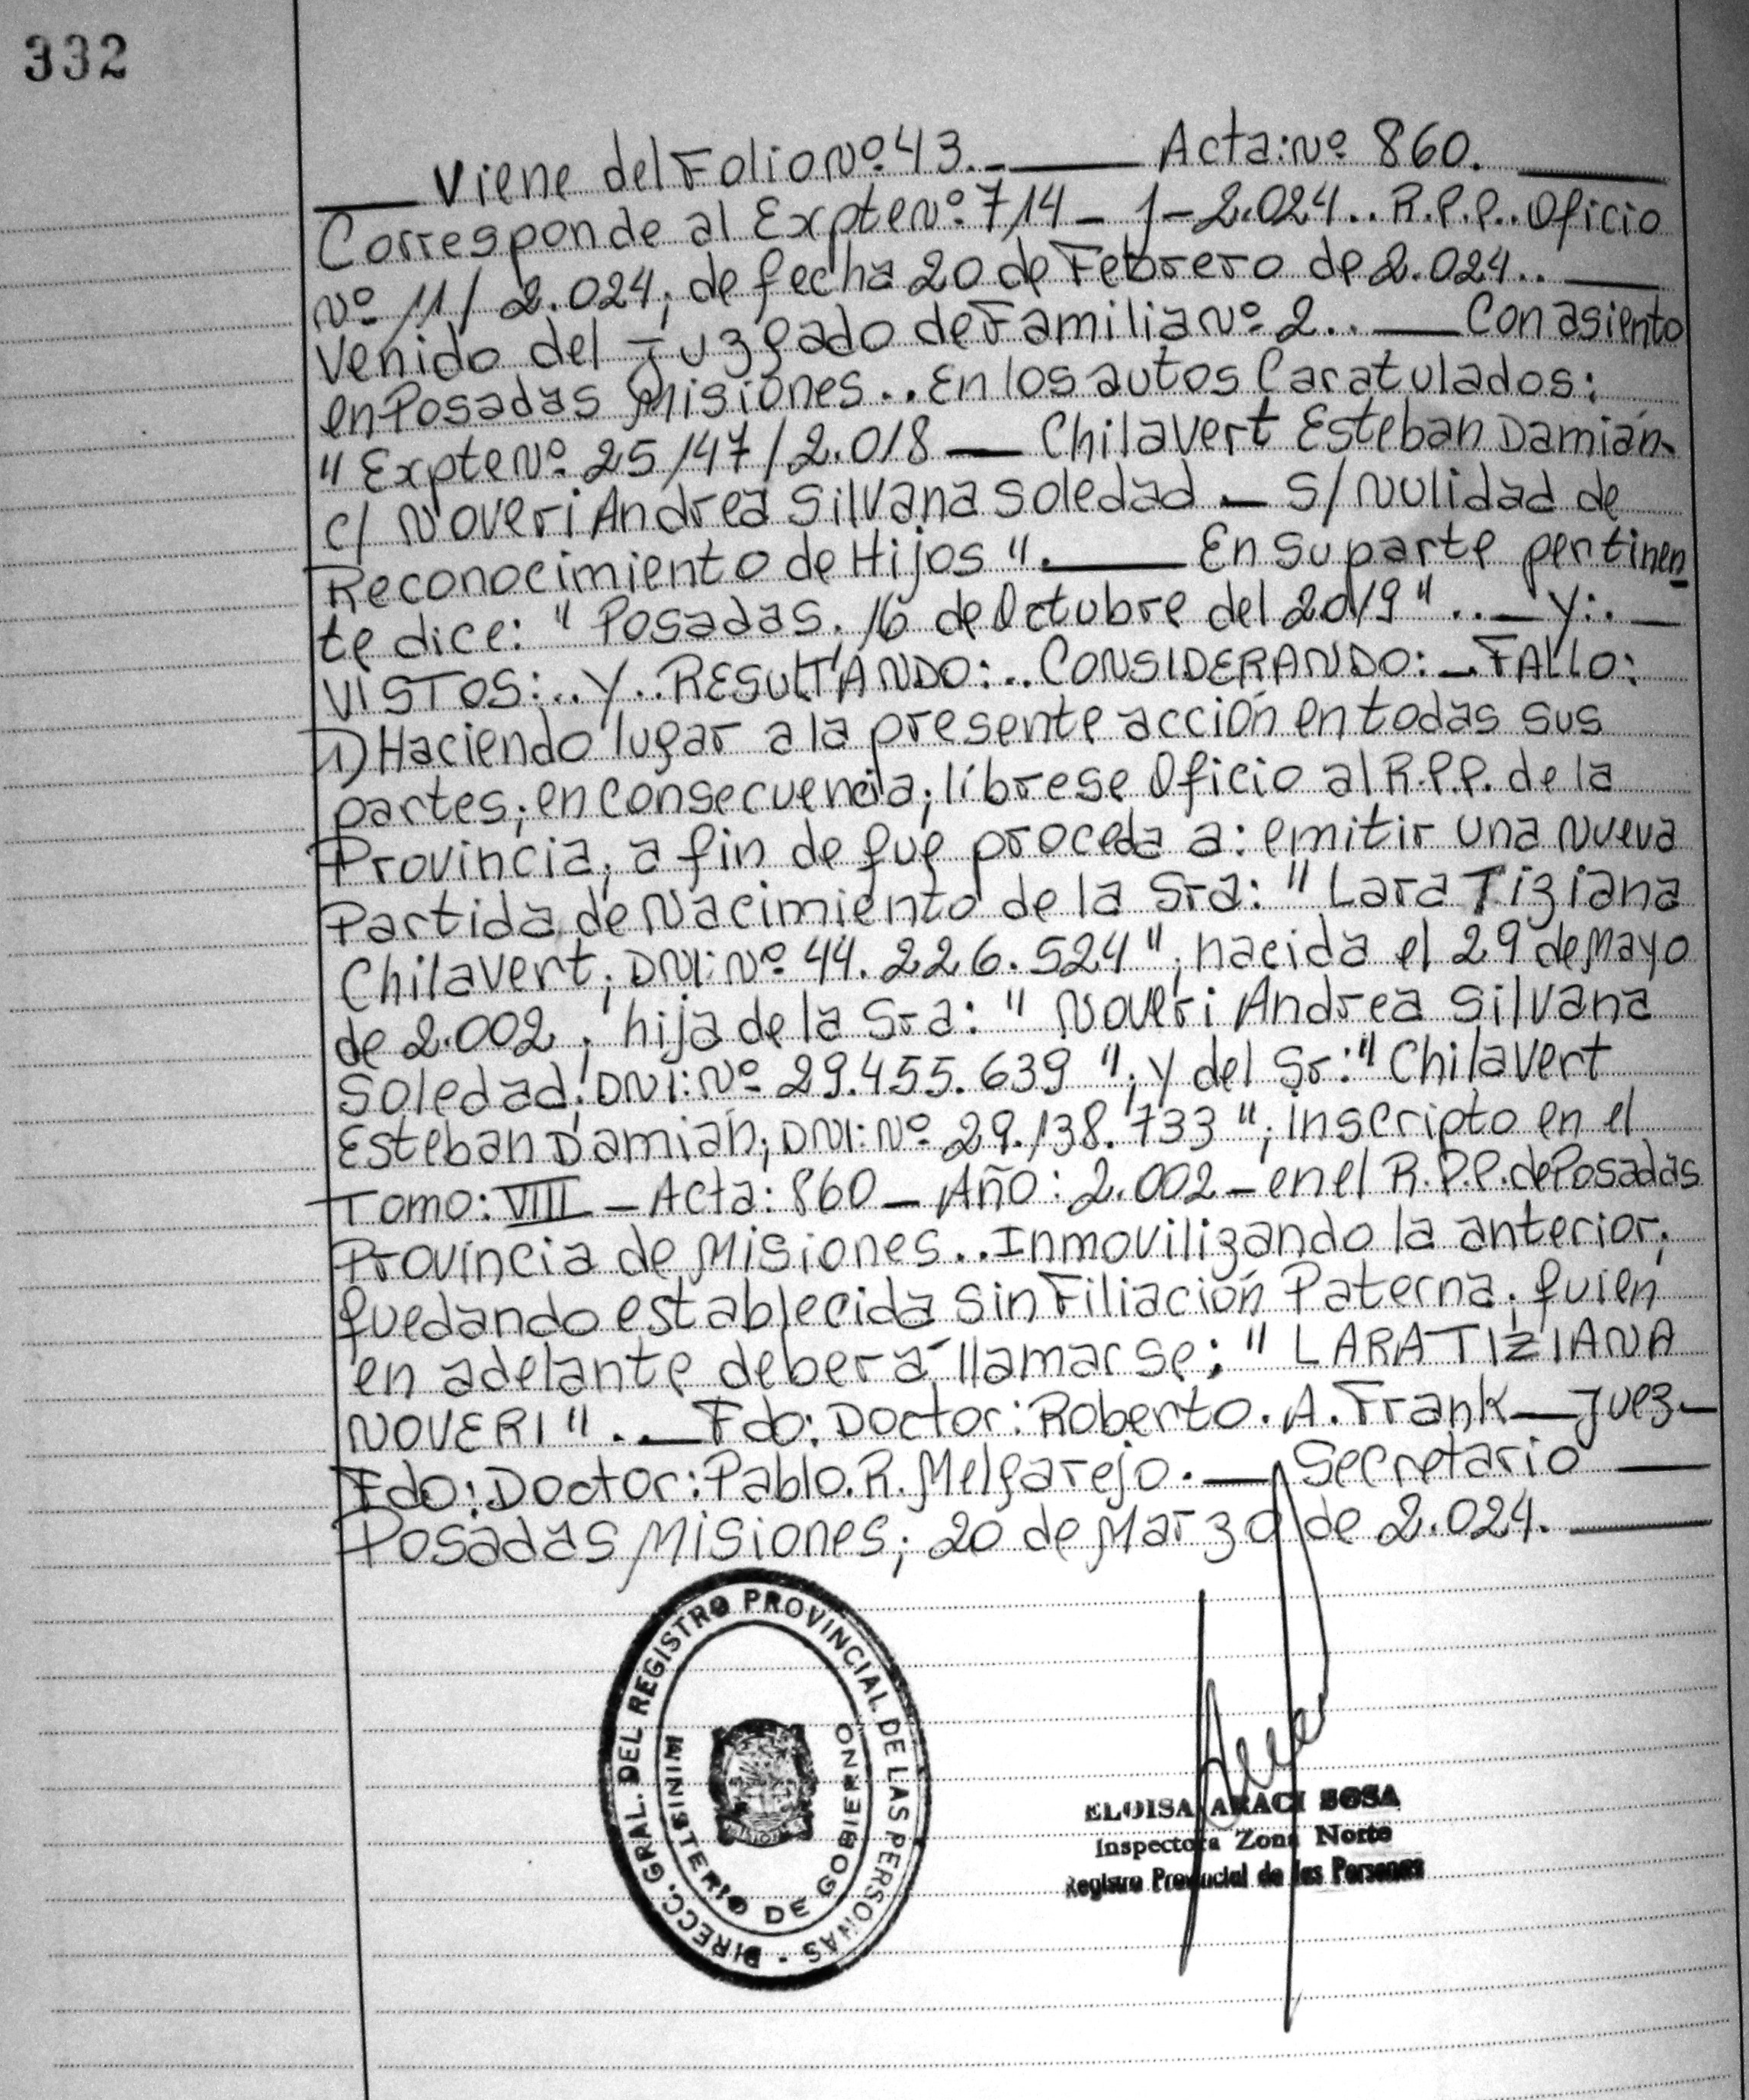 332
Viene del Folio Nº 43. Acta: Nº 860.
Corresponde al Expte Nº 714-1-2.024.. R.P.P.. Oficio
Nº 11/2.024; de fecha 20 de Febrero de 2.024..
Venido del Juzgado de Familia Nº 2.. Con asiento
en Posadas Misiones.. En los autos Caratulados:
"Expte Nº 25147/2.018 — Chilavert Esteban Damián
c/ Noveri Andrea Silvana Soledad — S/ Nulidad de
Reconocimiento de Hijos". En su parte pertinen
te dice: "Posadas, 16 de Octubre del 2019".. — Y:.
VISTOS:.. Y.. RESULTANDO:.. CONSIDERANDO: — FALLO:
1) Haciendo lugar a la presente acción en todas sus
partes; en Consecuencia; líbrese Oficio al R.P.P. de la
Provincia; a fin de que proceda a: emitir una nueva
Partida de Nacimiento de la Sra: "Lara Tiziana
Chilavert; DNI: Nº 44.226.524"; nacida el 29 de Mayo
de 2.002; hija de la Sra: "Noveri Andrea Silvana
Soledad; DNI: Nº 29.455.639"; y del Sr: "Chilavert
Esteban Damián; DNI: Nº 29.138.733"; inscripto en el
Tomo: VIII — Acta: 860 — Año: 2.002 — en el R.P.P. de Posadas
Provincia de Misiones.. Inmovilizando la anterior;
quedando establecida sin Filiación Paterna; quien
en adelante deberá llamarse; "LARA TIZIANA
NOVERI".. — Fdo: Doctor: Roberto. A. Frank — Juez —
Fdo: Doctor: Pablo. R. Melgarejo. — Secretario
Posadas Misiones; 20 de Marzo de 2.024.
DIRECC. GRAL. DEL REGISTRO PROVINCIAL DE LAS PERSONAS -
MINISTERIO DE GOBIERNO
ELOISA ARACI SOSA
Inspectora Zona Norte
Registro Provincial de las Personas